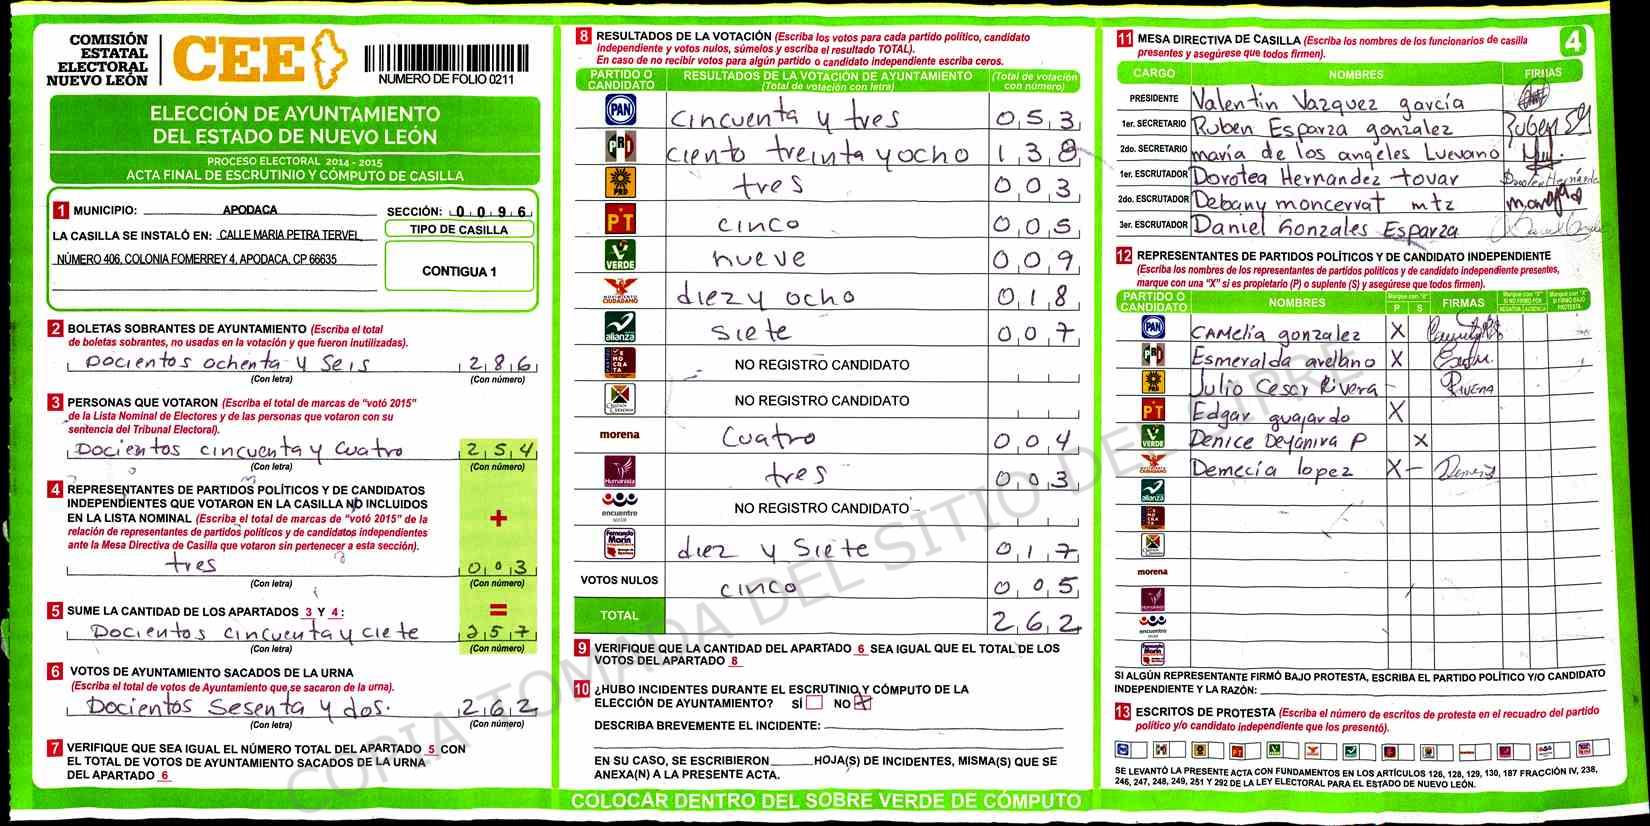 COMISIÓN
ESTATAL
ELECTORAL
NUEVO LEÓN
CEE
NUMERO DE FOLIO 0211
ELECCIÓN DE AYUNTAMIENTO
DEL ESTADO DE NUEVO LEÓN
PROCESO ELECTORAL 2014 - 2015
ACTA FINAL DE ESCRUTINIO Y CÓMPUTO DE CASILLA
1 MUNICIPIO: APODACA SECCIÓN: 0 0 9 6
LA CASILLA SE INSTALÓ EN: CALLE MARIA PETRA TERVEL
NÚMERO 406, COLONIA FOMERREY 4, APODACA, CP 66635
TIPO DE CASILLA
CONTIGUA 1
2 BOLETAS SOBRANTES DE AYUNTAMIENTO (Escriba el total
de boletas sobrantes, no usadas en la votación y que fueron inutilizadas).
Docientos ochenta y Seis 2 8 6
(Con letra) (Con número)
3 PERSONAS QUE VOTARON (Escriba el total de marcas de "votó 2015"
de la Lista Nominal de Electores y de las personas que votaron con su
sentencia del Tribunal Electoral).
Docientos cincuenta y Cuatro 2 5 4
(Con letra) (Con número)
4 REPRESENTANTES DE PARTIDOS POLÍTICOS Y DE CANDIDATOS
INDEPENDIENTES QUE VOTARON EN LA CASILLA NO INCLUIDOS
EN LA LISTA NOMINAL (Escriba el total de marcas de "votó 2015" de la
relación de representantes de partidos políticos y de candidatos independientes
ante la Mesa Directiva de Casilla que votaron sin pertenecer a esta sección).
+
tres 0 0 3
(Con letra) (Con número)
5 SUME LA CANTIDAD DE LOS APARTADOS 3 Y 4: =
Docientos cincuenta y ciete 2 5 7
(Con letra) (Con número)
6 VOTOS DE AYUNTAMIENTO SACADOS DE LA URNA
(Escriba el total de votos de Ayuntamiento que se sacaron de la urna).
Docientos Sesenta y dos. 2 6 2
(Con letra) (Con número)
7 VERIFIQUE QUE SEA IGUAL EL NÚMERO TOTAL DEL APARTADO 5 CON
EL TOTAL DE VOTOS DE AYUNTAMIENTO SACADOS DE LA URNA
DEL APARTADO 6
8 RESULTADOS DE LA VOTACIÓN (Escriba los votos para cada partido político, candidato
independiente y votos nulos, súmelos y escriba el resultado TOTAL).
En caso de no recibir votos para algún partido o candidato independiente escriba ceros.
PARTIDO O CANDIDATO RESULTADOS DE LA VOTACIÓN DE AYUNTAMIENTO (Total de votación con letra) (Total de votación con número)
PAN cincuenta y tres 0 5 3
PRI ciento treinta y ocho 1 3 8
PRD tres 0 0 3
PT cinco 0 0 5
VERDE nueve 0 0 9
MOVIMIENTO CIUDADANO diez y ocho 0 1 8
alianza siete 0 0 7
NO REGISTRO CANDIDATO
NO REGISTRO CANDIDATO
morena Cuatro 0 0 4
Humanista tres 0 0 3
encuentro social NO REGISTRO CANDIDATO
Fernando Marín diez y Siete 0 1 7
VOTOS NULOS cinco 0 0 5
TOTAL 2 6 2
9 VERIFIQUE QUE LA CANTIDAD DEL APARTADO 6 SEA IGUAL QUE EL TOTAL DE LOS
VOTOS DEL APARTADO 8
10 ¿HUBO INCIDENTES DURANTE EL ESCRUTINIO Y CÓMPUTO DE LA
ELECCIÓN DE AYUNTAMIENTO? SÍ NO X
DESCRIBA BREVEMENTE EL INCIDENTE:
EN SU CASO, SE ESCRIBIERON HOJA(S) DE INCIDENTES, MISMA(S) QUE SE
ANEXA(N) A LA PRESENTE ACTA.
COLOCAR DENTRO DEL SOBRE VERDE DE CÓMPUTO
11 MESA DIRECTIVA DE CASILLA (Escriba los nombres de los funcionarios de casilla
presentes y asegúrese que todos firmen).
4
CARGO NOMBRES FIRMAS
PRESIDENTE Valentin Vazquez garcía
1er. SECRETARIO Ruben Esparza gonzalez
2do. SECRETARIO maría de los angeles Luevano
1er. ESCRUTADOR Dorotea Hernandez tovar
2do. ESCRUTADOR Debany moncerrat mtz
3er. ESCRUTADOR Daniel Gonzales Esparza
12 REPRESENTANTES DE PARTIDOS POLÍTICOS Y DE CANDIDATO INDEPENDIENTE
(Escriba los nombres de los representantes de partidos políticos y de candidato independiente presentes,
marque con una "X" si es propietario (P) o suplente (S) y asegúrese que todos firmen).
PARTIDO O CANDIDATO NOMBRES P S FIRMAS
PAN CAMelia gonzalez X
PRI Esmeralda avelano X
PRD Julio Cesar Rivera Rivera
PT Edgar guajardo X
VERDE Denice Deyanira P X
Demecia lopez X
alianza
morena
Humanista
encuentro social
SI ALGÚN REPRESENTANTE FIRMÓ BAJO PROTESTA, ESCRIBA EL PARTIDO POLÍTICO Y/O CANDIDATO
INDEPENDIENTE Y LA RAZÓN:
13 ESCRITOS DE PROTESTA (Escriba el número de escritos de protesta en el recuadro del partido
político y/o candidato independiente que los presentó).
SE LEVANTÓ LA PRESENTE ACTA CON FUNDAMENTOS EN LOS ARTÍCULOS 126, 128, 129, 130, 187 FRACCIÓN IV, 238,
246, 247, 248, 249, 251 Y 292 DE LA LEY ELECTORAL PARA EL ESTADO DE NUEVO LEÓN.
COPIA TOMADA DEL SITIO DEL SIPRE